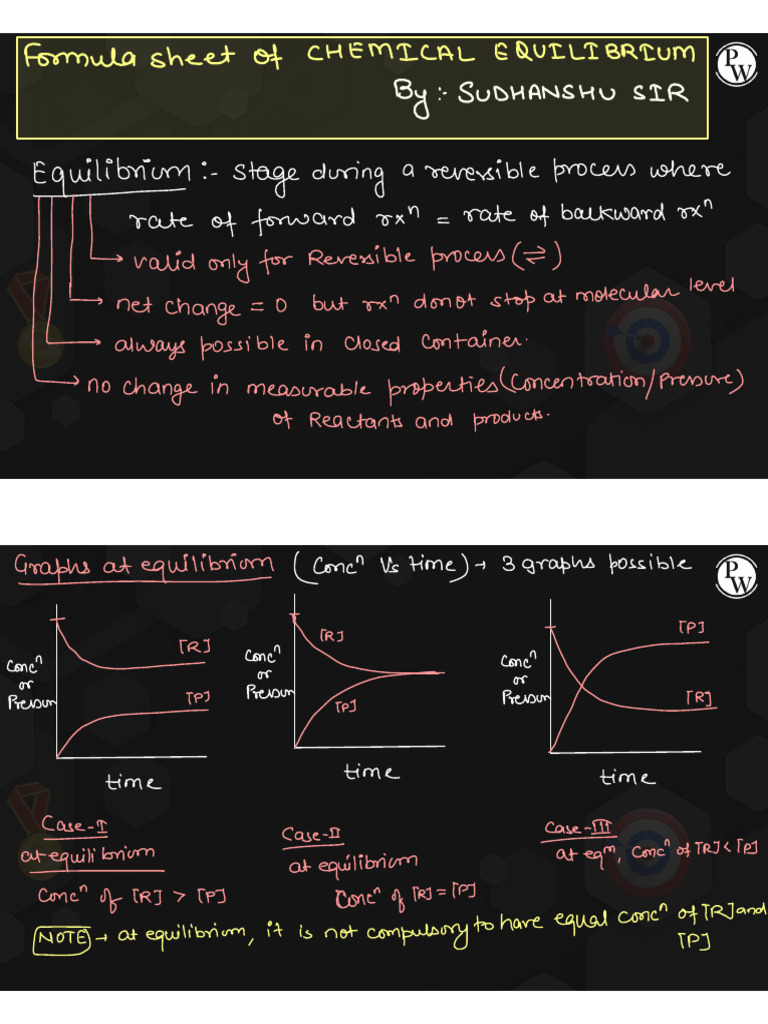 Formula sheet of CHEMICAL EQUILIBRIUM
By:- SUDHANSHU SIR
PW
Equilibrium :- stage during a reversible process where
rate of forward rxⁿ = rate of backward rxⁿ
→ valid only for Reversible process (⇌)
→ net change = 0 but rxⁿ donot stop at molecular level
→ always possible in closed container.
→ no change in measurable properties (concentration/pressure)
of Reactants and products.
Graphs at equilibrium (Concⁿ Vs time) → 3 graphs possible
PW
Concⁿ
or
Pressure
[R]
[P]
time
Concⁿ
or
Pressure
[R]
[P]
time
Concⁿ
or
Pressure
[P]
[R]
time
Case-I
at equilibrium
Concⁿ of [R] > [P]
Case-II
at equilibrium
Concⁿ of [R] = [P]
Case-III
at eqᵐ, Concⁿ of [R] < [P]
NOTE → at equilibrium, it is not compulsory to have equal concⁿ of [R] and
[P]